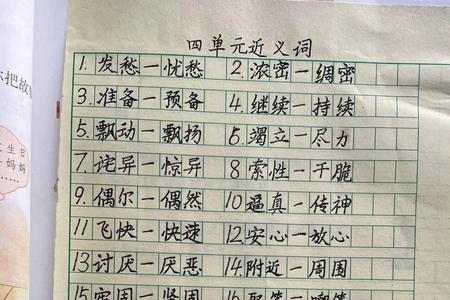 四单元近义词
1. 发愁—忧愁 2. 浓密—绸密
3. 准备—预备 4. 继续—持续
5. 飘动—飘扬 6. 竭立—尽力
7. 诧异—惊异 8 索性—干脆
9. 偶尔—偶然 10 逼真—传神
11 飞快—快速 12. 安心—放心
13 讨厌—厌恶 14. 附近—周围
15 牢固—坚固
把故
生日
妈妈